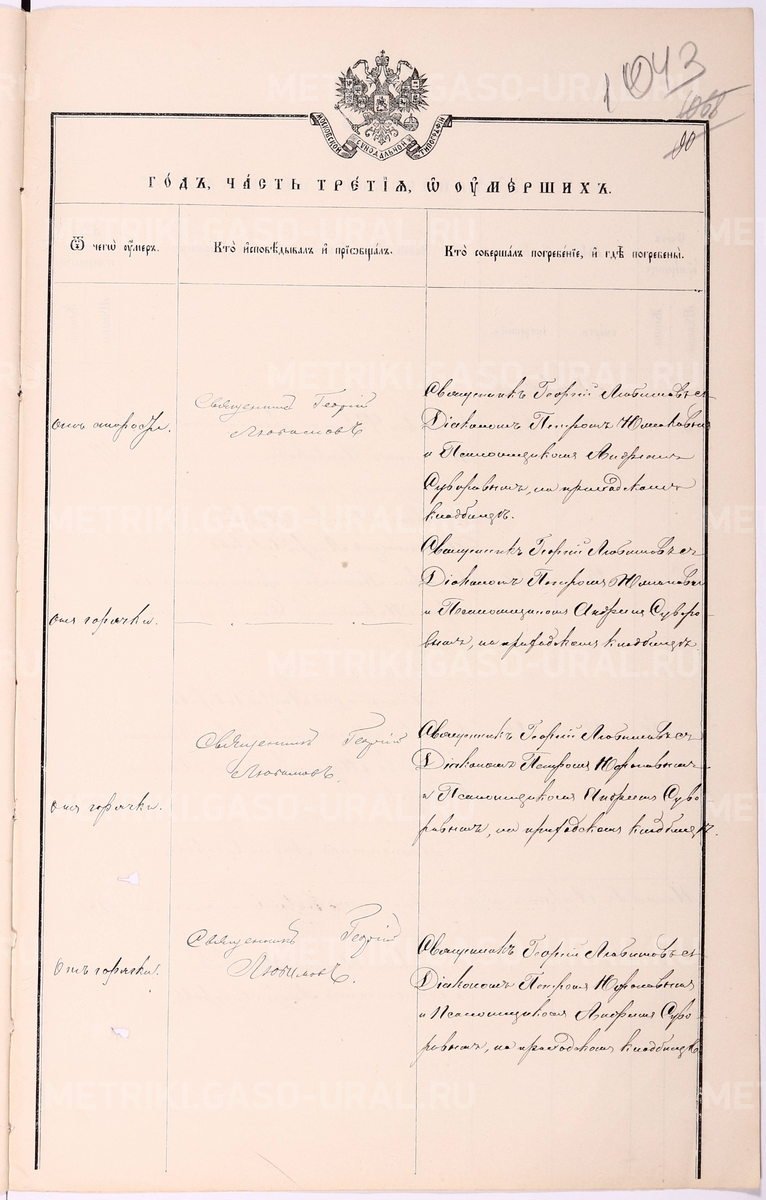 1043
90
МОСКОВСКОЙ СѴНОДАЛЬНОЙ ТИПОГРАФІИ
ГО́ДЪ, ЧА́СТЬ ТРЕ́ТІѦ, Ѡ҆ ОУ҆МЕ́РШИХЪ.
Ѿ чегѡ̀ оу҆́меръ.
Кто̀ и҆сповѣ́дывалъ и҆ прїѡбща́лъ.
Кто̀ соверша́лъ погребе́нїе, и҆ гдѣ̀ погребены̀.
Отъ старости.
Священникъ Георгій
Любимовъ
Священникъ Георгій Любимовъ съ
Діакономъ Петромъ
и Псаломщикомъ Андреемъ
Суворовымъ, на приходскомъ
кладбищѣ.
отъ горячки.
Священникъ Георгій Любимовъ съ
Діакономъ Петромъ
и Псаломщикомъ Андреемъ Суворо-
вымъ, на приходскомъ кладбищѣ.
отъ горячки.
Священникъ Георгій
Любимовъ.
Священникъ Георгій Любимовъ съ
Діакономъ Петромъ
и Псаломщикомъ Андреемъ Суво-
ровымъ, на приходскомъ кладбищѣ.
Отъ горячки.
Священникъ Георгій
Любимовъ.
Священникъ Георгій Любимовъ съ
Діакономъ Петромъ
и Псаломщикомъ Андреемъ Суво-
ровымъ, на приходскомъ кладбищѣ.
METRIKI.GASO-URAL.RU